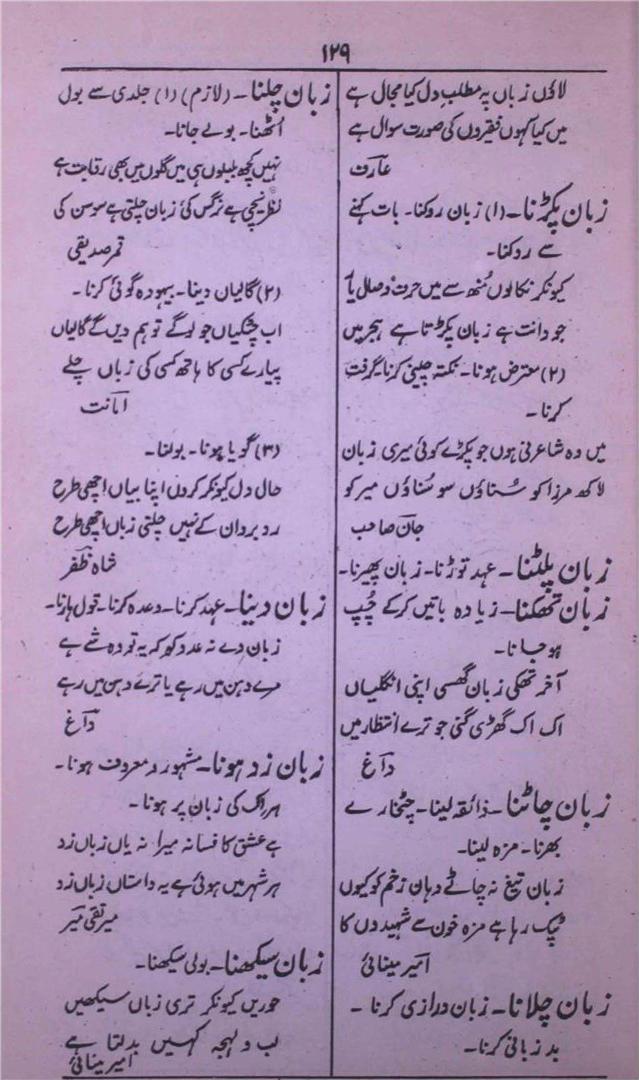 ۱۲۹
لاؤں زباں پہ مطلبِ دل کیا مجال ہے
میں کیا کہوں فقیروں کی صورت سوال ہے
عارف
زبان پکڑنا۔ (۱) زبان روکنا۔ بات کہنے
سے روکنا۔
کیونکر نکالوں مُنھ سے میں حرف وصال یار
جو دانت ہے زبان پکڑتا ہے ہجر میں
(۲) معترض ہونا۔ نکتہ چینی کرنا گرفت
کرنا۔
میں وہ شاعر نی ہوں جو پکڑے کوئی میری زبان
لاکھ مرزا کو سُناؤں سو سُناؤں میر کو
جان صاحب
زبان پلٹنا۔ عہد توڑنا۔ زبان پھیرنا۔
زبان تھکنا۔ زیادہ باتیں کرکے چُپ
ہو جانا۔
آخر تھکی زبان گھسی اپنی انگلیاں
اک اک گھڑی گنی جو ترے انتظار میں
داغ
زبان چاٹنا۔ ذائقہ لینا۔ چٹخارے
بھرنا۔ مزہ لینا۔
زبان تیغ نہ چاٹے دہان زخم کو کیوں
ٹپک رہا ہے مزہ خون سے شہیدوں کا
امیر مینائی
زبان چلانا۔ زبان درازی کرنا ۔
بد زبانی کرنا۔
زبان چلنا۔ (لازم) (۱) جلدی سے بول
اُٹھنا۔ بولے جانا۔
نہیں کچھ بلبلوں ہی میں گلوں میں بھی رقابت ہے
نظر نیچی ہے نرگس کی زبان چلتی ہے سوسن کی
قمر صدیقی
(۲) گالیاں دینا۔ بیہودہ گوئی کرنا۔
اب چٹکیاں جو لوگے تو ہم دیں گے گالیاں
پیارے کسی کا ہاتھ کسی کی زباں چلے
امانت
(۳) گویا ہونا۔ بولنا۔
حال دل کیونکر کروں اپنا بیاں اچھی طرح
روبرو ان کے نہیں چلتی زباں اچھی طرح
شاہ ظفر
زبان دینا۔ عہد کرنا۔ وعدہ کرنا۔ قول ہارنا۔
زبان دے نہ عدو کو کہ یہ تو وہ شے ہے
مرے دہن میں رہے یا ترے دہن میں رہے
داغ
زبان زد ہونا۔ مشہور و معروف ہونا۔
ہر اک کی زبان پر ہونا۔
ہے عشق کا فسانہ میرا نہ یاں زباں زد
ہر شہر میں ہوئی ہے یہ داستاں زباں زد
میر تقی میر
زبان سیکھنا۔ بولی سیکھنا۔
حوریں کیونکر تری زباں سیکھیں
لب و لہجہ کہیں بدلتا ہے
امیر مینائی